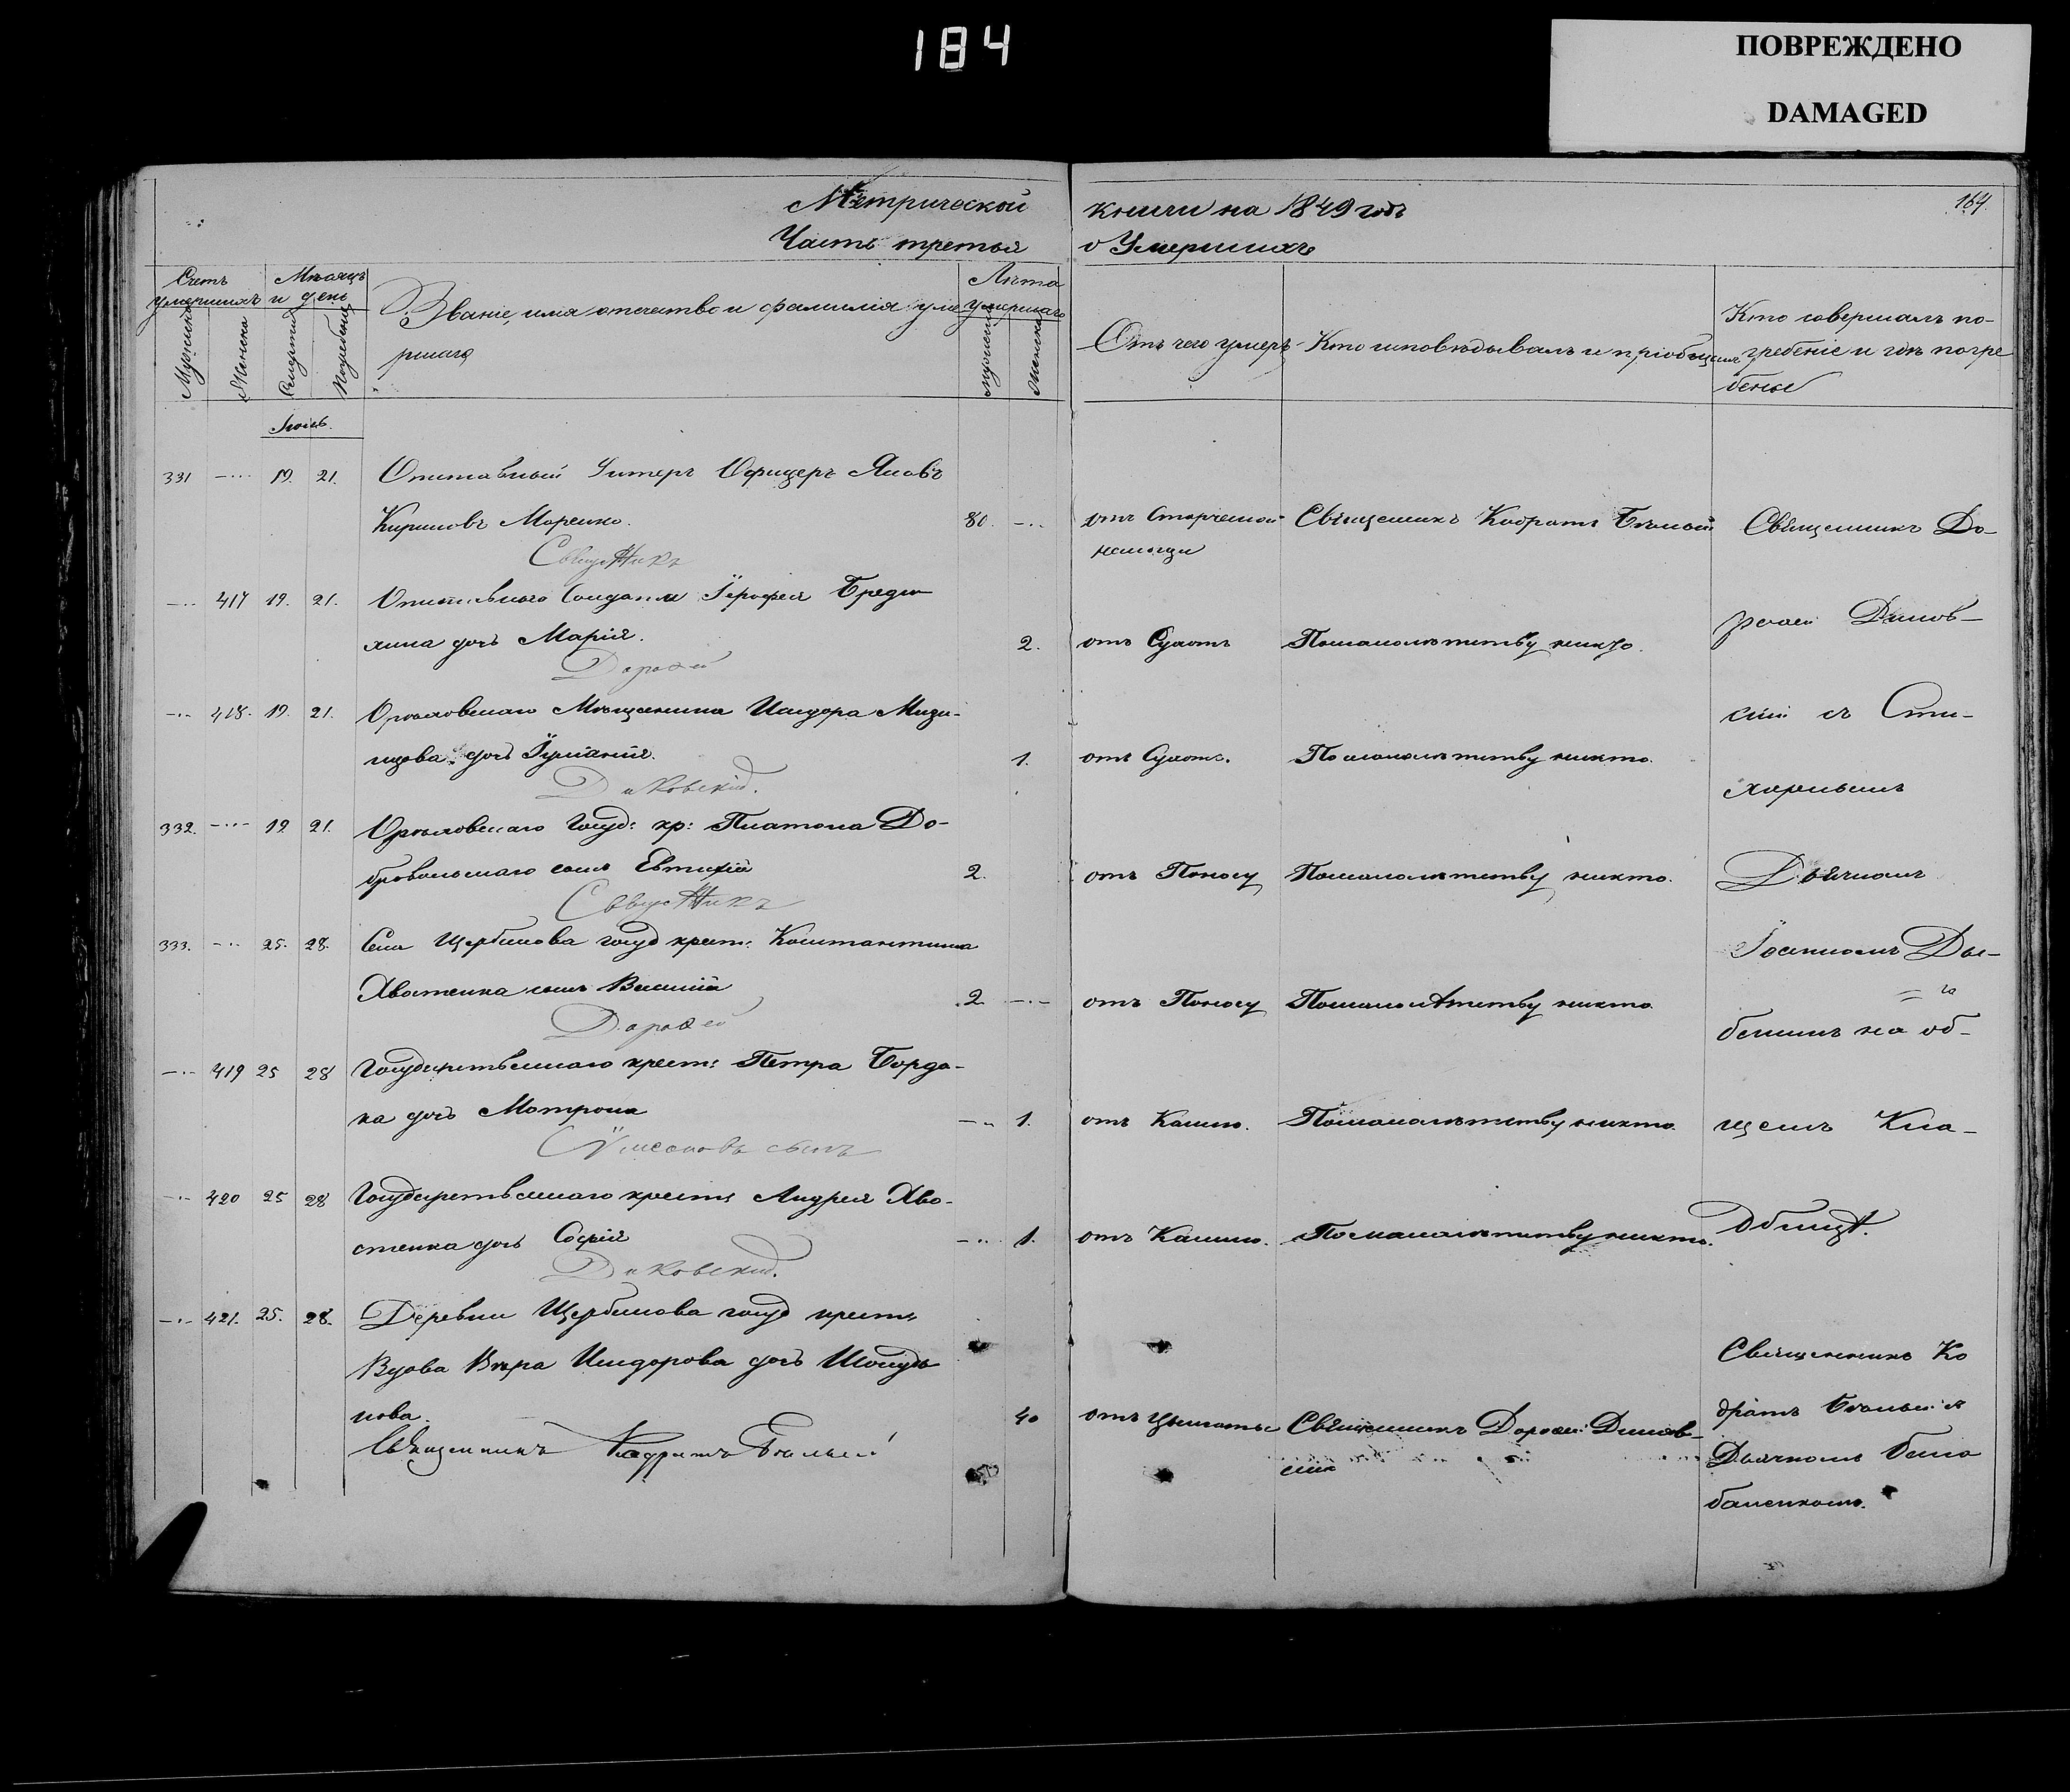 184
ПОВРЕЖДЕНО
DAMAGED
Метрической книги на 1849 годъ
164.
Часть третья о Умершихъ
Счетъ умершихъ
Мужска
Женска
Мѣсяцъ и день
Смерти
Погребенія
Званіе, имя отечество и фамилія уме
ршаго
Лѣта умершаго
Мужеска
Женска
Отъ чего умеръ
Кто исповѣдывалъ и пріобщалъ
Кто совершалъ по-
гребеніе и гдѣ погре
бены
331 19. 21. Отставный Унтеръ Офицеръ Яковъ
Кириловъ Моренко. 80. отъ Старческой Священникъ Кодратъ Бѣлый Священникъ До-
немощи
Священникъ
417 19. 21. Отставнаго Солдата Іерофея
дочь Марія. 2. отъ Сухотъ По малолѣтству никто.
рофей Диков-
Дорофей
418. 19. 21. Орѣховскаго Мѣщанина Исидора Мизи-
дочь Іуліанія. 1. отъ Сухотъ. По малолѣтству никто.
скій съ Сти-
харнымъ
Диковскій.
332. 19 21. Орѣховскаго Госуд: кр: Платона До-
бровольскаго сынъ Евтихій 2. отъ Поносу По малолѣтству никто. Дьячкомъ
Священникъ
333. 25. 28. Села Щербинова госуд крест: Константина
Хвостенка сынъ Василій 2. отъ Поносу По малолѣтству никто
Іоанномъ
на об-
Дорофей
419 25 28 Государственнаго крест: Петра
ка дочь Мотрона 1. отъ Кашлю. По малолѣтству никто. щемъ Кла-
сынъ
420 25 28 Государственнаго крест: Андрея Хво-
стенка дочь Софія 1. отъ Кашлю. По малолѣтству никто. дбищѣ.
Диковскій.
421. 25. 28. Деревни Щербинова госуд крест:
Вдова Вѣра Исидорова дочь
40 Священникъ Дорофей Диков-
скій
Священникъ Ко
дратъ Бѣлый съ
Дьячкомъ
Священникъ Кодратъ Бѣлый